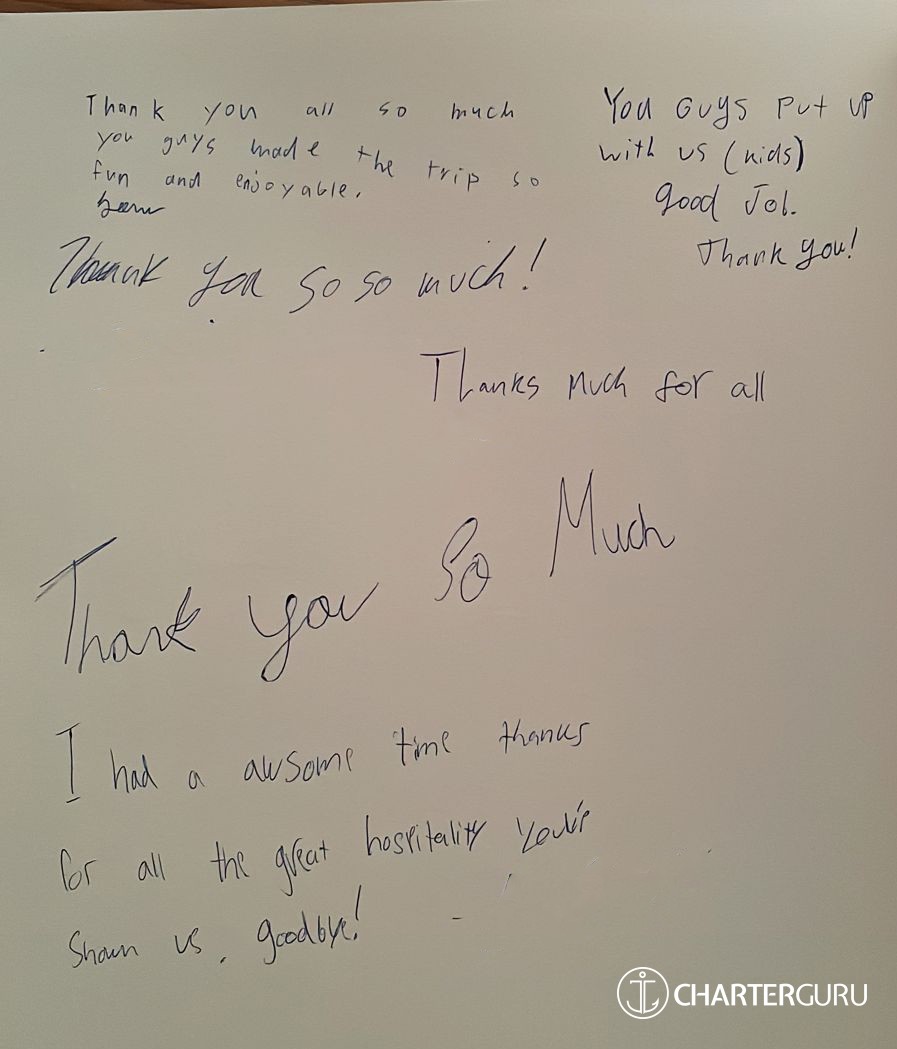 Thank you all so much
you guys made the trip so
fun and enjoyable.
You Guys Put up
with us (kids)
good Job.
Thank you!
Thank you so so much!
Thanks much for all
Thank you So Much
I had a awsome time thanks
for all the great hospitality You've
Shown us, goodbye!
CHARTERGURU